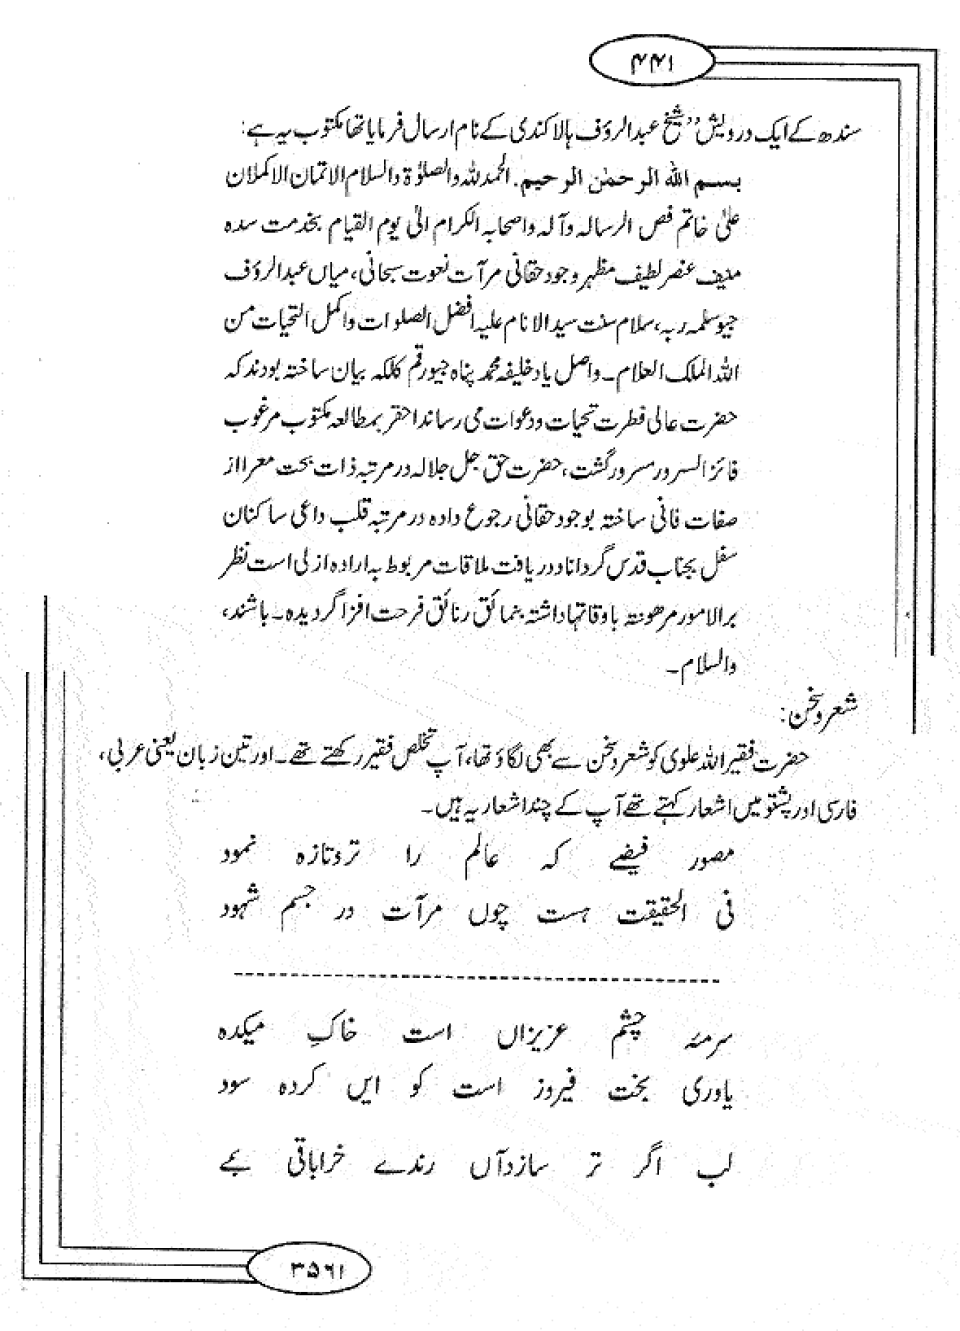 ۴۴۱
سندھ کے ایک درویش ”شیخ عبدالرؤف ہالا کندی کے نام ارسال فرمایا تھا مکتوب یہ ہے:
بسم اللہ الرحمٰن الرحیم. الحمدللہ والصلوٰۃ والسلام الاتمان الاکملان
علیٰ خاتم فص الرسالہ وآلہ واصحابہ الکرام الیٰ یوم القیام بخدمت سدہ
منیف عنصر لطیف مظہر وجود حقانی مرآت نعوت سبحانی، میاں عبدالرؤف
جیو سلمہ ربہ، سلام سنت سید الانام علیہ افضل الصلوات واکمل التحیات من
اللہ الملک العلام۔ واصل باد خلیفہ محمد پناہ جیو رقم کللکہ بیان ساختہ بودند کہ
حضرت عالی فطرت تحیات ودعوات می رساند احقر بمطالعہ مکتوب مرغوب
فائز السرور مسرور گشت، حضرت حق جل جلالہ در مرتبہ ذات بحت معرا از
صفات فانی ساختہ بوجود حقانی رجوع دادہ در مرتبہ قلب داعی ساکنان
سفل بجناب قدس گرداناد ودریافت ملاقات مربوط بہ ارادہ ازلی است نظر
بر الامور مرھونتہ باوقاتہا داشتہ بنمائق رنائق فرحت افزا گردیدہ۔ باشند،
والسلام۔
شعر وسخن:
حضرت فقیر اللہ علوی کو شعر وسخن سے بھی لگاؤ تھا، آپ تخلص فقیر رکھتے تھے۔ اور تین زبان یعنی عربی،
فارسی اور پشتو میں اشعار کہتے تھے آپ کے چند اشعار یہ ہیں۔
مصور فیضے کہ عالم را تروتازہ نمود
فی الحقیقت ہست چوں مرآت در جسم شہود
سرمئہ چشم عزیزاں است خاکِ میکدہ
یاوری بخت فیروز است کو ایں کردہ سود
لب اگر تر سازدآں رندے خراباتی بمے
۳۵۶۱